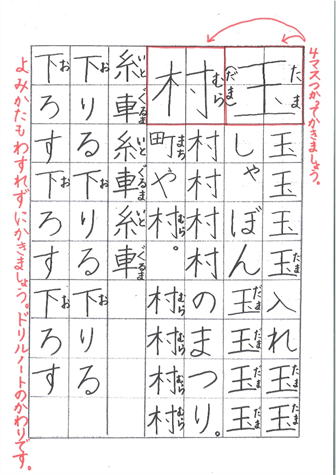 4マスつかってかきましょう。
玉 たま (だま)
玉玉玉玉たま入れ玉たま玉たま
しゃぼん玉だま玉だま玉だま玉だま
村 むら
村村村村のまつり。
町まちや村むら。村むら村むら村むら村むら
糸いと車ぐるま糸いと車ぐるま糸いと車ぐるま
下おりる下おりる下おりる
下おろす下おろす下おろす
よみかたもわすれずにかきましょう。ドリルノートのかわりです。